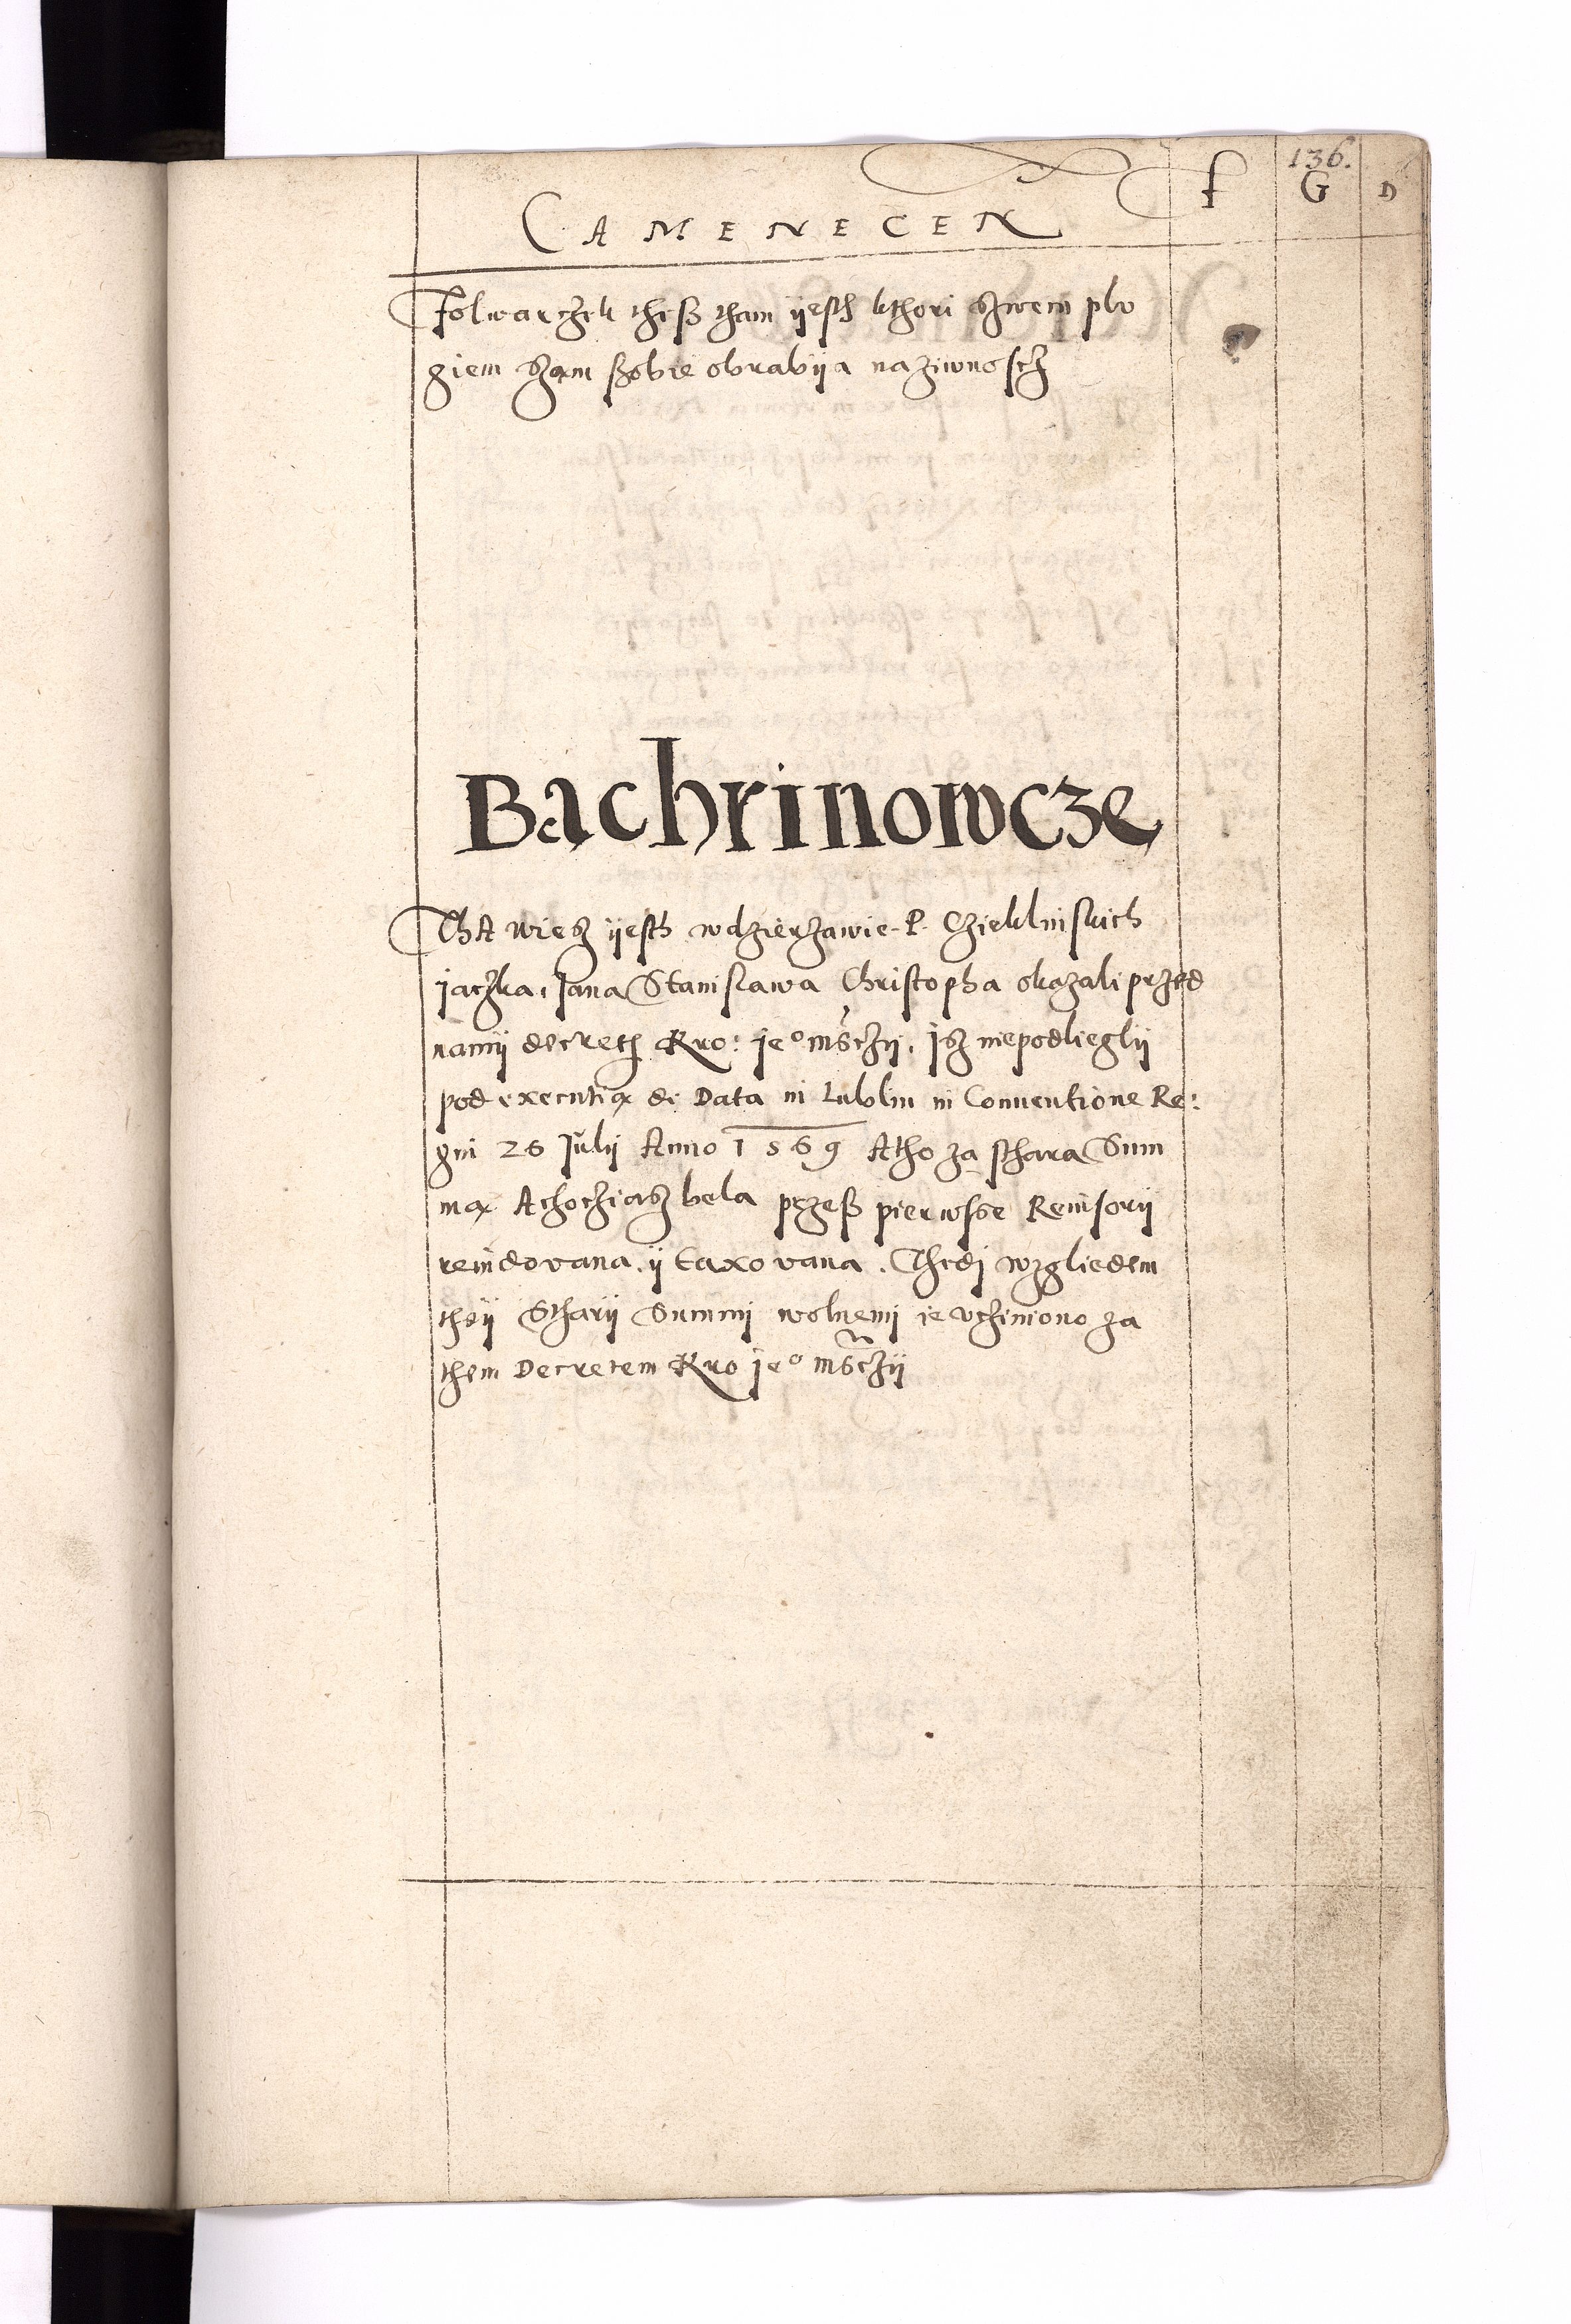 136.
CAMENECEN
f G D
Folwarczek theß tham yesth kthori szwem plu
giem szam szobie obrabya naziwnoscz
Bachrinowcze
ThA wiesz yesth w dzierzawie P. Czieklinskich
jaczka, Jana Stanislawa Christopha okazali przed
namy decreth Kro: jeo msczy, jsz niepodliegly
pod executią de Data in Lublin in Conuentione Re:
gni 26 July Anno 1569 A tho za sthara Sum
mą A chocziasz bela przeß pierwsse Reuisory
reuidovana y taxovana. Thedi wzgliedem
they Sthary Summi wolnemi je vcziniono za
them Decretem Kro jeo msczy